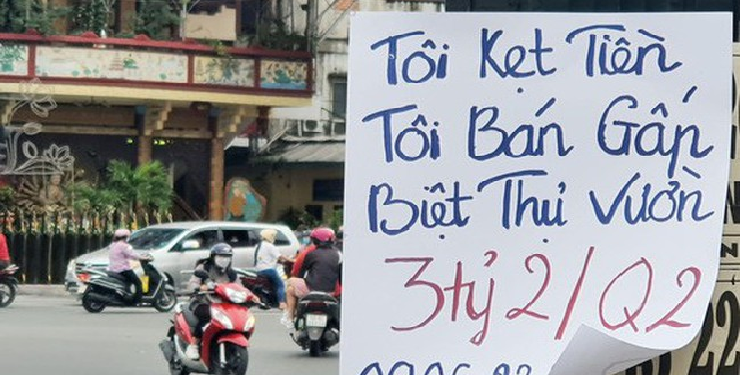 Tôi Kẹt Tiền
Tôi Bán Gấp
Biệt Thự Vườn
3 tỷ 2 / Q2
22